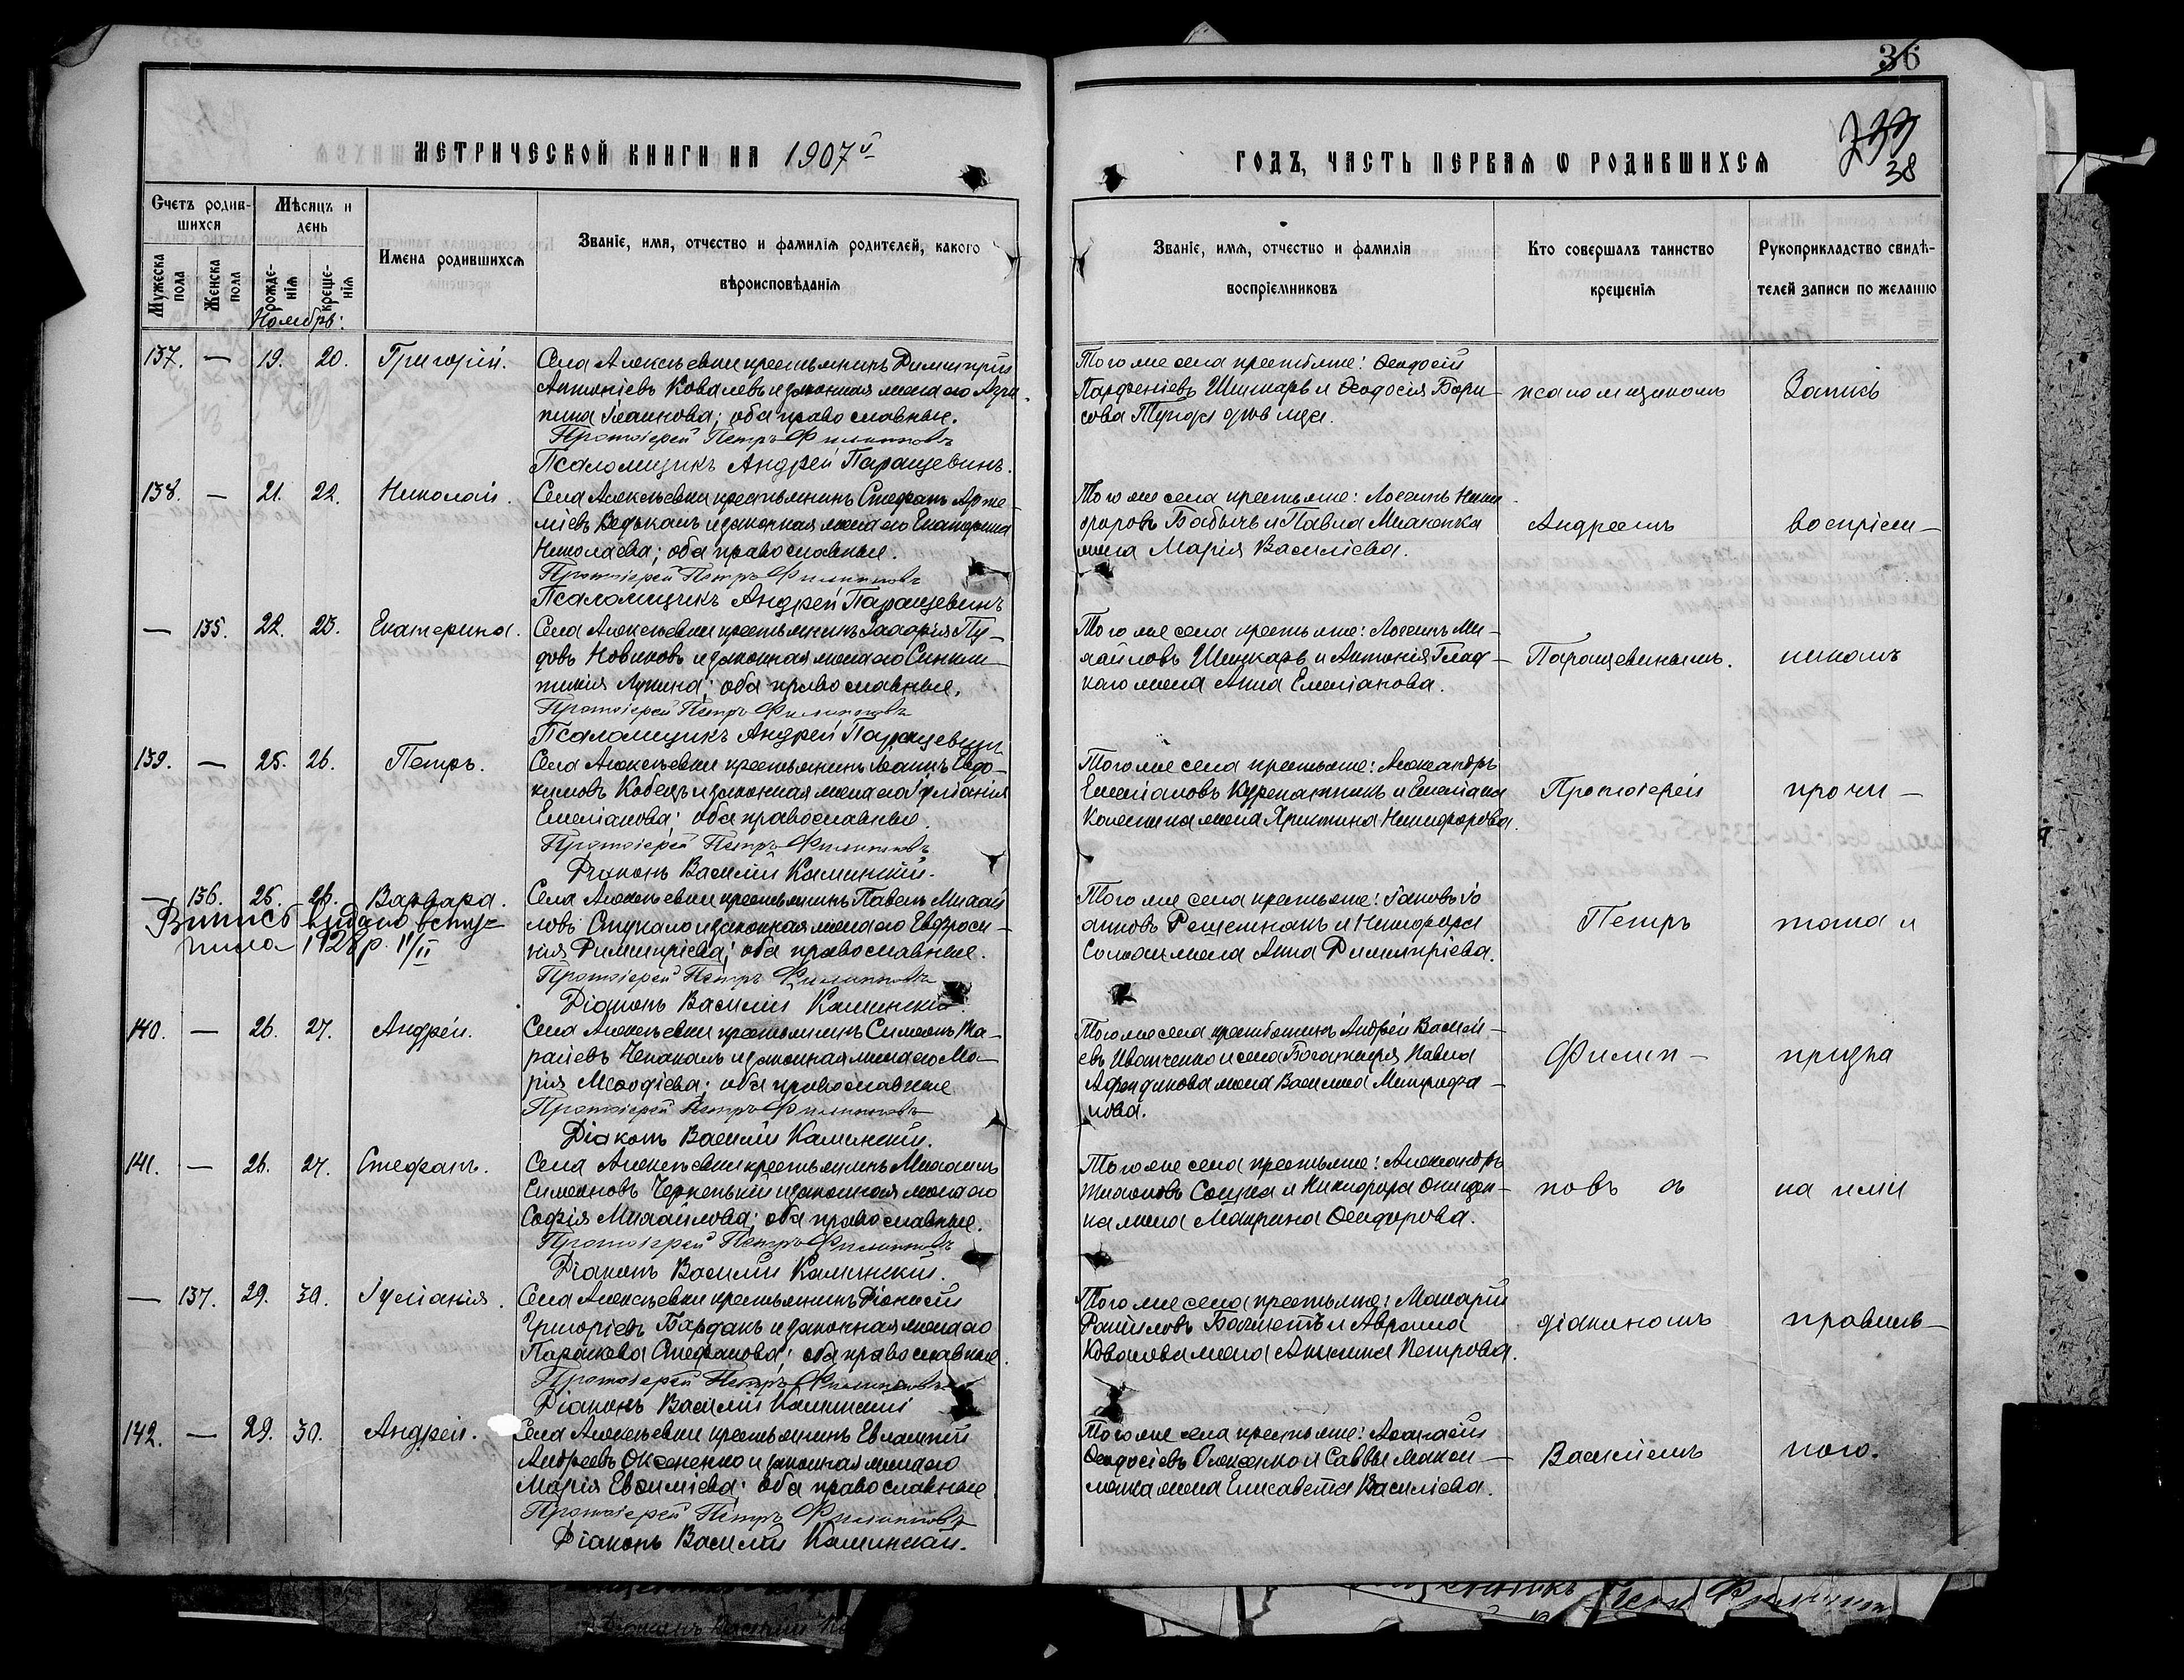 36
739
38
МЕТРИЧЕСКОЙ КНИГИ НА 1907й
ГОДЪ, ЧАСТЬ ПЕРВАЯ Ѡ РОДИВШИХСЯ
Счетъ родив-
шихся
Мужеска пола
Женска пола
Мѣсяцъ и
день
рожде-
нія
креще-
нія
Имена родившихся
Званіе, имя, отчество и фамилія родителей, какого
вѣроисповѣданія
Званіе, имя, отчество и фамилія
воспріемниковъ
Кто совершалъ таинство
крещенія
Рукоприкладство свидѣ-
телей записи по желанію
Ноябрь:
137. — 19. 20. Григорій.
Села Алексѣевки крестьянинъ Димитрій
Антоніевъ Ковалевъ и законная жена его Агри-
пина Іоаннова; оба православные.
Протоіерей Петръ Филипповъ
Псаломщикъ Андрей Паращевинъ.
Того же села крестьяне: Ѳеодосій
Парѳеніевъ Шинкарь и Ѳеодосія Бори-
сова
псаломщикомъ
Запись
138. — 21. 22. Николай.
Села Алексѣевки крестьянинъ Стефанъ Арте-
міевъ и законная жена его Екатерина
Николаева; оба православные.
Протоіерей Петръ Филипповъ
Псаломщикъ Андрей Паращевинъ
Того же села крестьяне: Логгинъ Ники-
форовъ Бабычъ и Павла
жена Марія Василіева.
Андреемъ
воспріем-
— 135. 22. 23. Екатерина.
Села Алексѣевки крестьянинъ Захарія Пу-
довъ Новиковъ и законная жена его Синкли-
тикія Лукина; оба православные.
Протоіерей Петръ Филипповъ
Псаломщикъ Андрей Паращевинъ
Того же села крестьяне: Логгинъ Ми-
хайловъ Шинкарь и Антонія Глад-
каго жена Анна Емеліанова.
Паращевинымъ.
никомъ
139. — 25. 26. Петръ.
Села Алексѣевки крестьянинъ Іоаннъ Евдо-
кимовъ Кобецъ и законная жена его Іуліанія
Емеліанова; оба православные.
Протоіерей Петръ Филипповъ
Діаконъ Василій Каминскій.
Того же села крестьяне: Александръ
Емеліановъ и Емеліана
жена Христина Никифорова.
Протоіерей
прочи-
— 136. 25. 26. Варвара.
Випись видано
1928 р. 11/II
Села Алексѣевки крестьянинъ Павелъ Михай-
ловъ Стукало и законная жена его Евфроси-
нія Димитріева; оба православные.
Протоіерей Петръ Филипповъ
Діаконъ Василій Каминскій.
Того же села крестьяне: Іаковъ Іо-
анновъ Решетнякъ и Никифора
жена Анна Димитріева.
Петръ
тана и
140. — 26. 27. Андрей.
Села Алексѣевки крестьянинъ Симеонъ Та-
расіевъ и законная жена его Ма-
рія Меѳодіева; оба православные
Протоіерей Петръ Филипповъ
Діаконъ Василій Каминскій.
Того же села крестьянинъ Андрей Василі-
евъ Иванченко и села Павла
Афендикова жена Василиса Митрофа-
нова.
Филип-
призна
141. — 26. 27. Стефанъ.
Села Алексѣевки крестьянинъ Михаилъ
Симеоновъ и законная жена его
Софія Михайлова; оба православные.
Протоіерей Петръ Филипповъ
Діаконъ Василій Каминскій.
Того же села крестьяне: Александръ
Тихоновъ Сошка и Никифора Онищен-
ка жена Макрина Ѳеодорова.
повъ съ
на ими
— 137. 29. 30. Іуліанія.
Села Алексѣевки крестьянинъ Діонисій
Григоріевъ Бардакъ и законная жена его
Параскева Стефанова; оба православные.
Протоіерей Петръ Филипповъ
Діаконъ Василій Каминскій
Того же села крестьяне: Макарій
и Авраама
Ковалева жена Акилина Петрова.
діакономъ
правиль-
142. — 29. 30. Андрей.
Села Алексѣевки крестьянинъ Евлампій
Андреевъ Оксененко и законная жена его
Марія Евѳиміева; оба православные
Протоіерей Петръ Филипповъ
Діаконъ Василій Каминскій.
Того же села крестьяне: Аѳанасій
Ѳеодосіевъ и Саввы Макси-
менка жена Елисавета Василіева.
Василіемъ
ною.